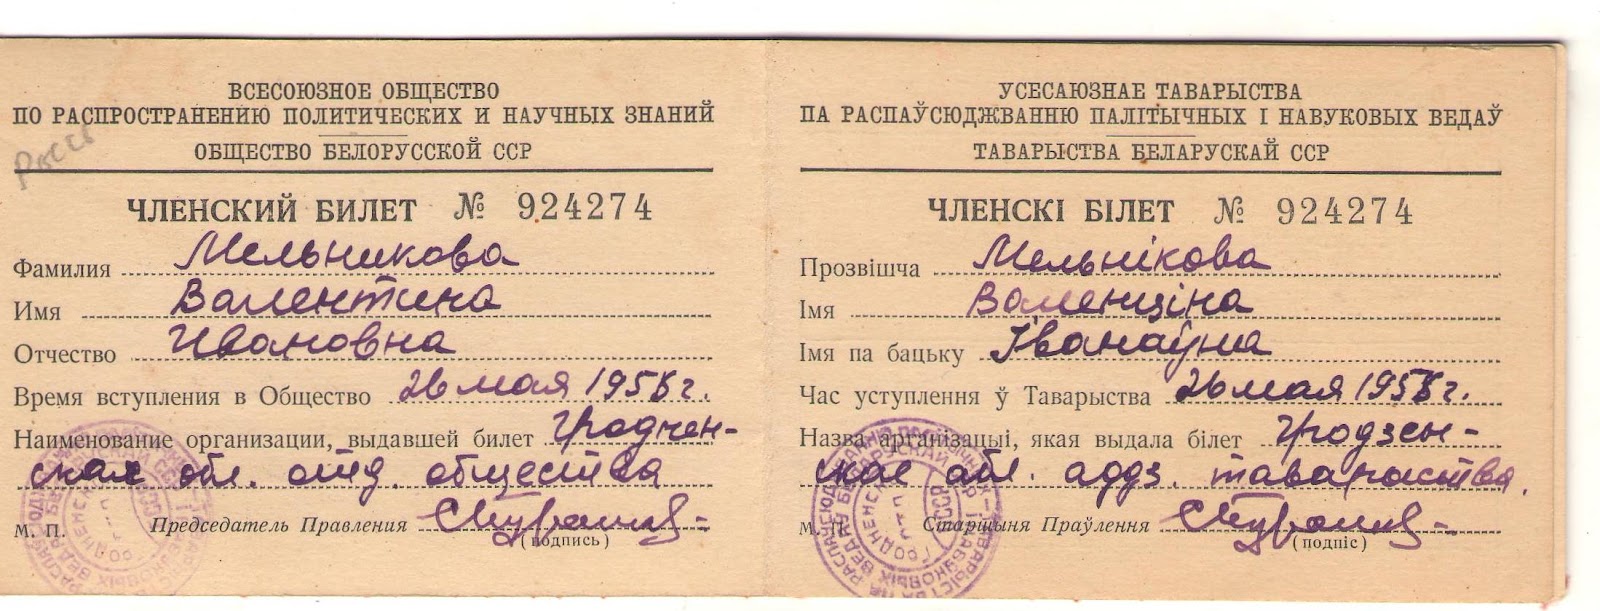 ВСЕСОЮЗНОЕ ОБЩЕСТВО
ПО РАСПРОСТРАНЕНИЮ ПОЛИТИЧЕСКИХ И НАУЧНЫХ ЗНАНИЙ
ОБЩЕСТВО БЕЛОРУССКОЙ ССР
ЧЛЕНСКИЙ БИЛЕТ № 924274
Фамилия Мельникова
Имя Валентина
Отчество Ивановна
Время вступления в Общество 26 мая 195 г.
Наименование организации, выдавшей билет Гроднен-
ская обл. отд. общества
М. П. Председатель Правления
(подпись)
УСЕСАЮЗНАЕ ТАВАРЫСТВА
ПА РАСПАЎСЮДЖВАННЮ ПАЛІТЫЧНЫХ І НАВУКОВЫХ ВЕДАЎ
ТАВАРЫСТВА БЕЛАРУСКАЙ ССР
ЧЛЕНСКІ БІЛЕТ № 924274
Прозвішча Мельнікова
Імя Валенціна
Імя па бацьку Іванаўна
Час уступлення ў Таварыства 26 мая 195 г.
Назва арганізацыі, якая выдала білет Гродзен-
скае абл. аддз. таварыства.
М. П. Старшыня Праўлення
(подпіс)